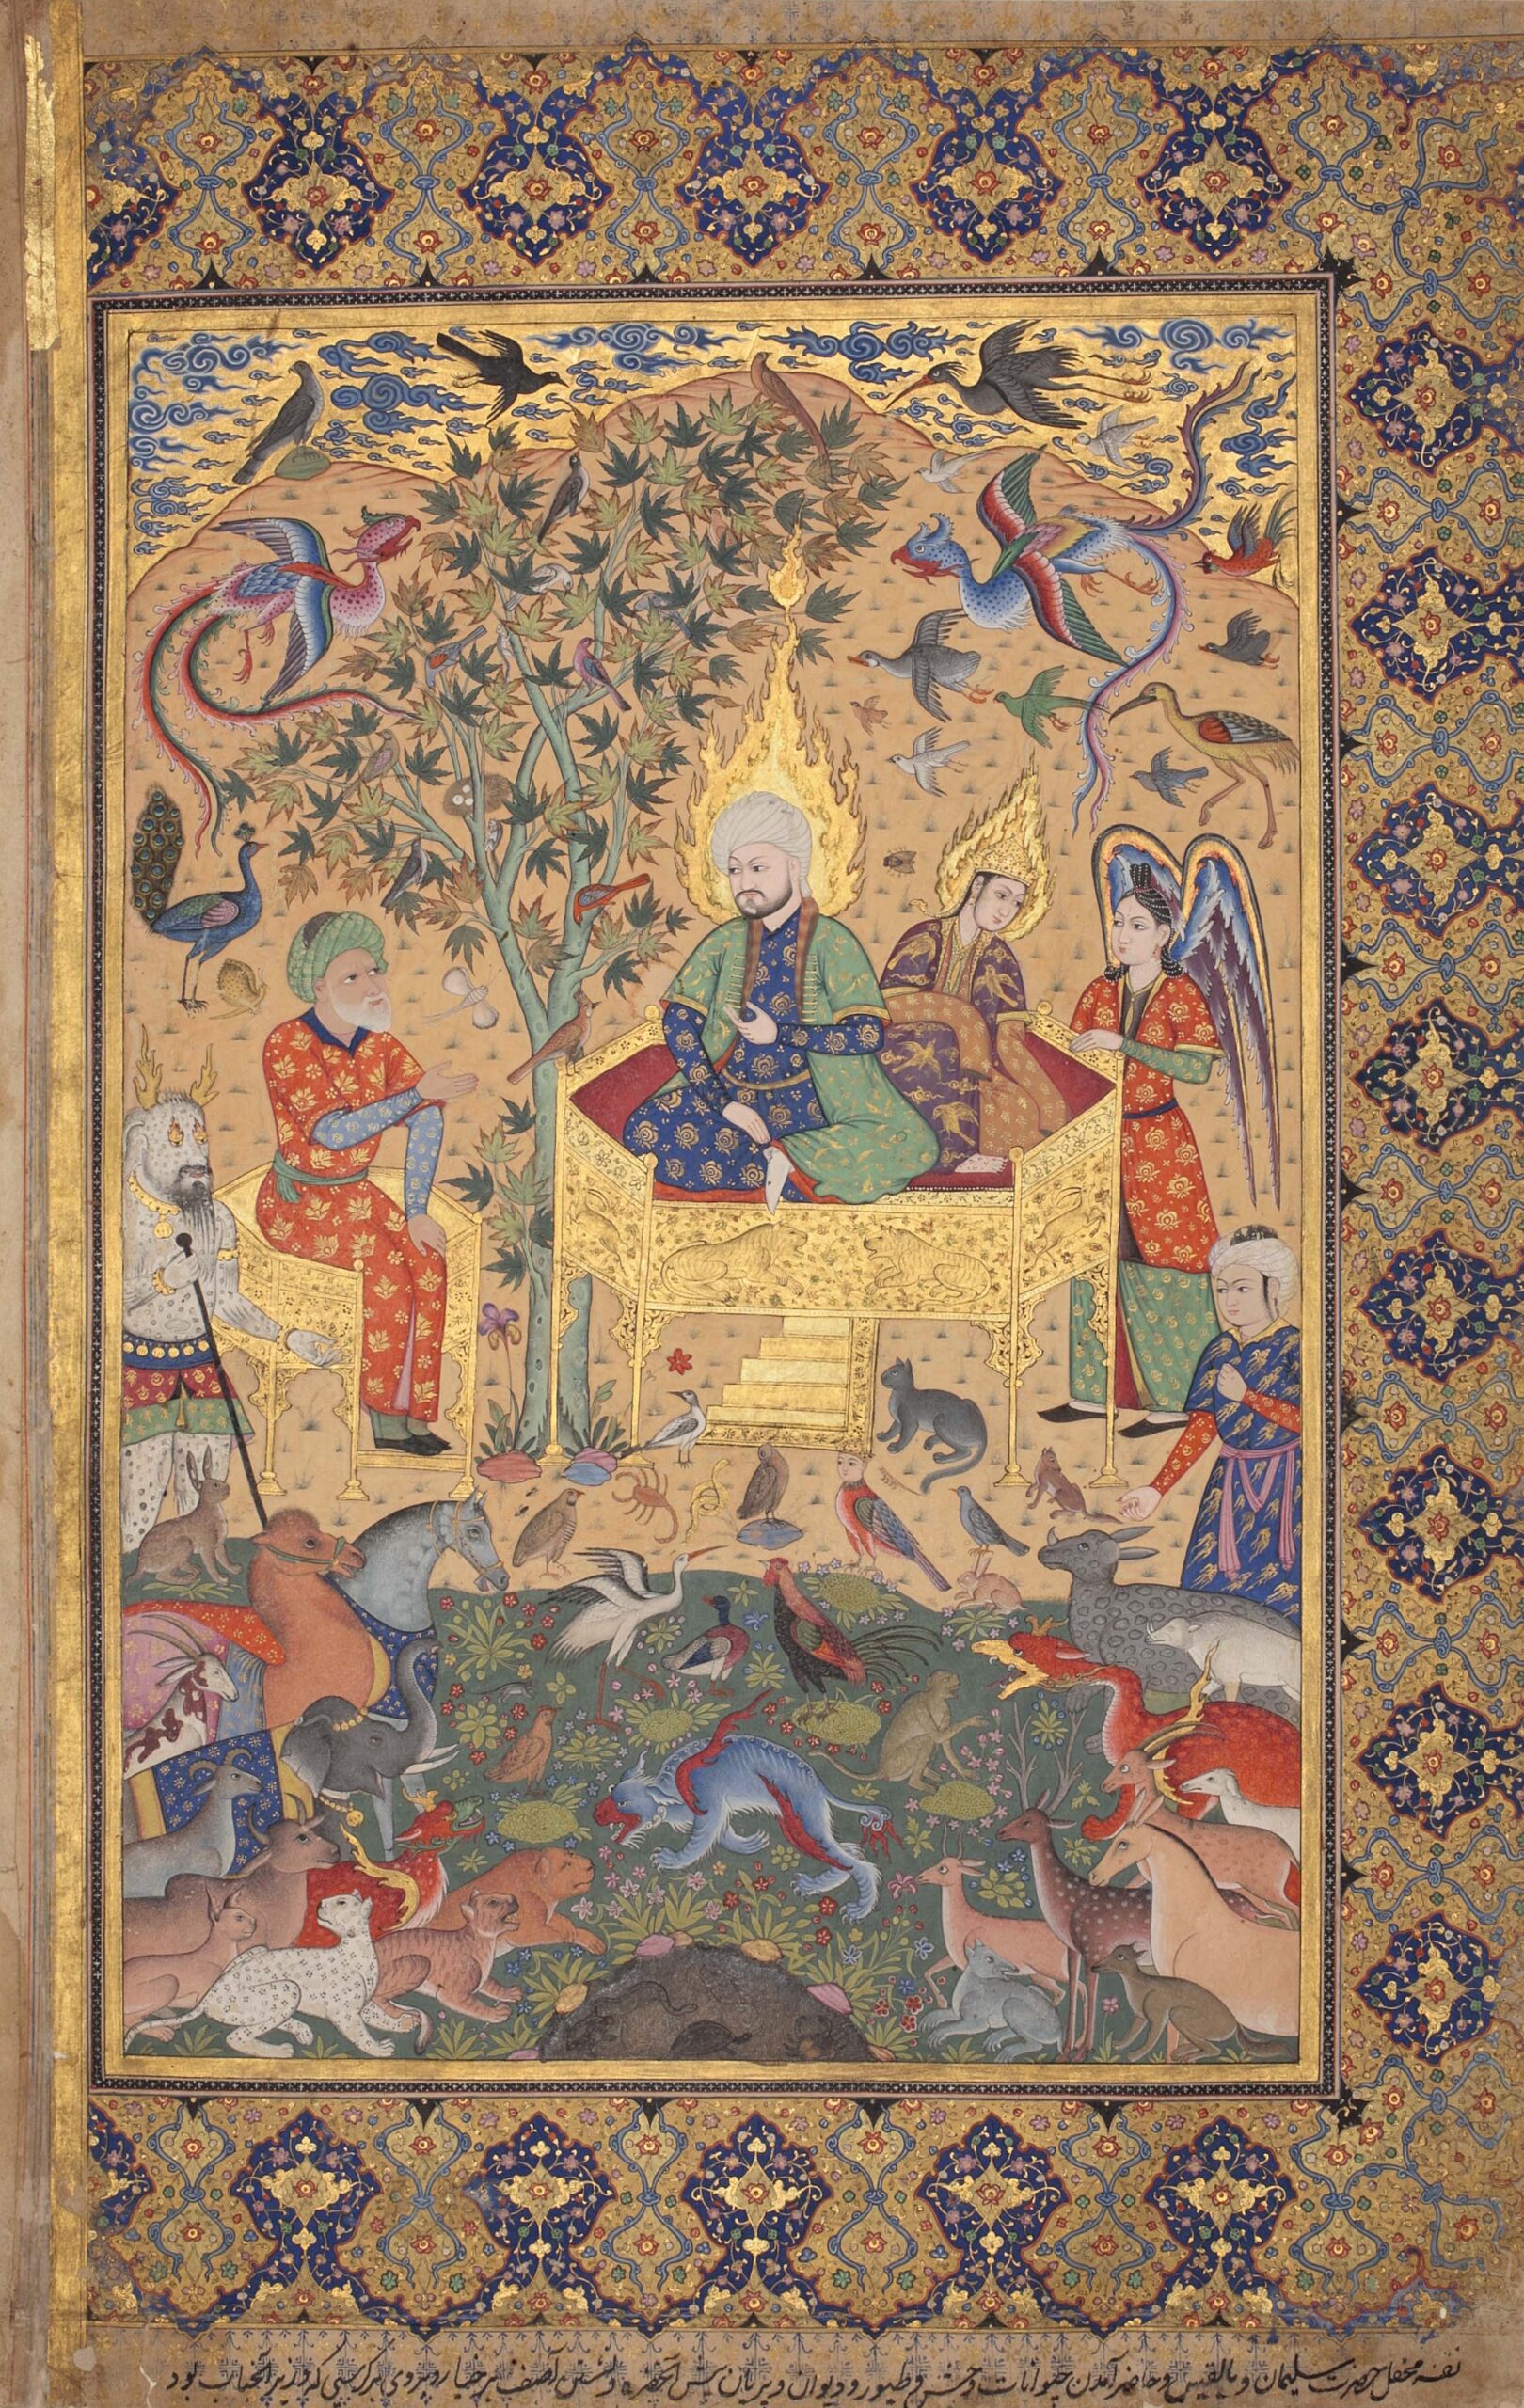 نقشه محفل حضرت سلیمان و بالقیس و حاضر آمدن حیوانات وحش و طیور و دیوان و پریان پیش آنحضرة و نشستن آصف برخیا روبروی بر کرسیی که وزیر آنجناب بود